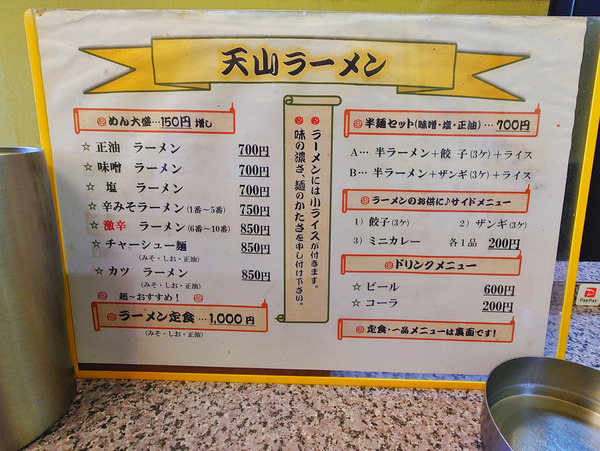 天山ラーメン
めん大盛…150円 増し
☆ 正油 ラーメン 700円
☆ 味噌 ラーメン 700円
☆ 塩 ラーメン 700円
☆ 辛みそラーメン(1番~5番) 750円
☆ 激辛 ラーメン(6番~10番) 850円
☆ チャーシュー麺 850円
(みそ・しお・正油)
☆ カツ ラーメン 850円
(みそ・しお・正油)
超~おすすめ!
ラーメン定食…1,000円
(みそ・しお・正油)
ラーメンには小ライスが付きます。
味の濃さ、麺のかたさを申し付け下さい。
半麺セット(味噌・塩・正油)…700円
A… 半ラーメン+餃子(3ケ)+ライス
B… 半ラーメン+ザンギ(3ケ)+ライス
ラーメンのお供に♪サイドメニュー
1) 餃子(3ケ) 2) ザンギ(3ケ)
3) ミニカレー 各1品 200円
ドリンクメニュー
☆ ビール 600円
☆ コーラ 200円
定食・一品メニューは裏面です!
PayPay